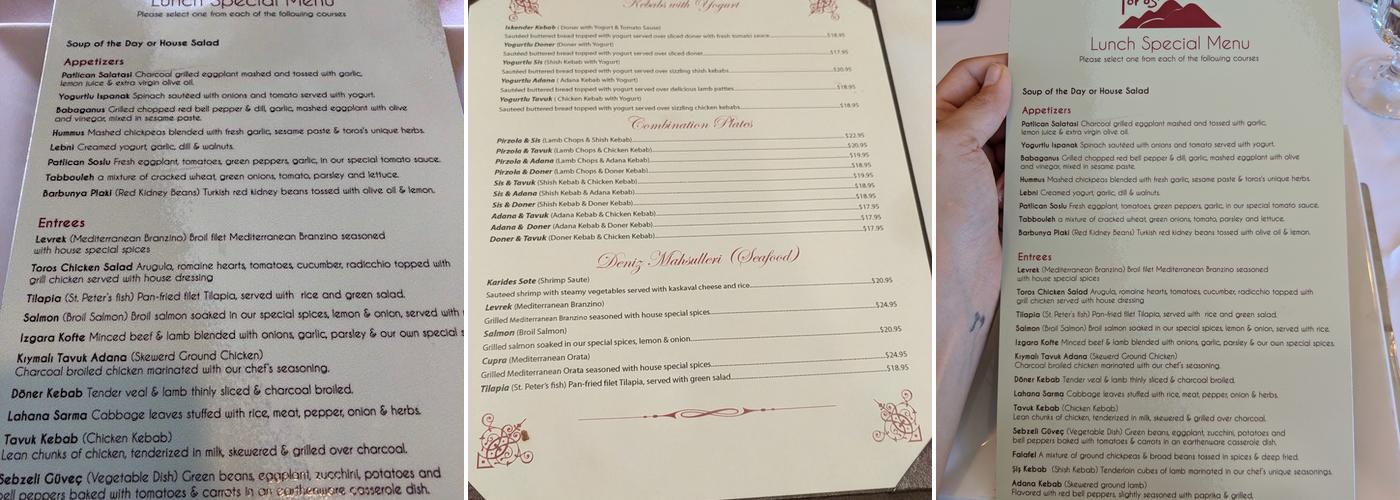 Lunch Special Menu
Please select one from each of the following courses
Soup of the Day or House Salad
Appetizers
Patlican Salatasi Charcoal grilled eggplant mashed and tossed with garlic,
lemon juice & extra virgin olive oil.
Yogurtlu Ispanak Spinach sautéed with onions and tomato served with yogurt.
Babaganus Grilled chopped red bell pepper & dill, garlic, mashed eggplant with olive
and vinegar, mixed in sesame paste.
Hummus Mashed chickpeas blended with fresh garlic, sesame paste & toros's unique herbs.
Lebni Creamed yogurt, garlic, dill & walnuts.
Patlican Soslu Fresh eggplant, tomatoes, green peppers, garlic, in our special tomato sauce.
Tabbouleh a mixture of cracked wheat, green onions, tomato, parsley and lettuce.
Barbunya Plaki (Red Kidney Beans) Turkish red kidney beans tossed with olive oil & lemon.
Entrees
Levrek (Mediterranean Branzino) Broil filet Mediterranean Branzino seasoned
with house special spices
Toros Chicken Salad Arugula, romaine hearts, tomatoes, cucumber, radicchio topped with
grill chicken served with house dressing
Tilapia (St. Peter's fish) Pan-fried filet Tilapia, served with rice and green salad.
Salmon (Broil Salmon) Broil salmon soaked in our special spices, lemon & onion, served with
Izgara Kofte Minced beef & lamb blended with onions, garlic, parsley & our own special
Kıymalı Tavuk Adana (Skewerd Ground Chicken)
Charcoal broiled chicken marinated with our chef's seasoning.
Döner Kebab Tender veal & lamb thinly sliced & charcoal broiled.
Lahana Sarma Cabbage leaves stuffed with rice, meat, pepper, onion & herbs.
Tavuk Kebab (Chicken Kebab)
Lean chunks of chicken, tenderized in milk, skewered & grilled over charcoal.
Sebzeli Güveç (Vegetable Dish) Green beans, eggplant, zucchini, potatoes and
bell peppers baked with tomatoes & carrots in an earthenware casserole dish.
Kebabs with Yogurt
Iskender Kebab ( Doner with Yogurt & Tomato Sause)
Sautéed buttered bread topped with yogurt served over sliced doner with fresh tomato sauce $18.95
Yogurtlu Doner (Doner with Yogurt)
Sautéed buttered bread topped with yogurt served over sliced doner $17.95
Yogurtlu Sis (Shish Kebab with Yogurt)
Sautéed buttered bread topped with yogurt served over sizzling shish kebabs $20.95
Yogurtlu Adana ( Adana Kebab with Yogurt)
Sautéed buttered bread topped with yogurt served over delicious lamb patties $18.95
Yogurtlu Tavuk ( Chicken Kebab with Yogurt)
Sautéed buttered bread topped with yogurt served over sizzling chicken kebabs $18.95
Combination Plates
Pirzola & Sis (Lamb Chops & Shish Kebab) $22.95
Pirzola & Tavuk (Lamb Chops & Chicken Kebab) $20.95
Pirzola & Adana (Lamb Chops & Adana Kebab) $19.95
Pirzola & Doner (Lamb Chops & Doner Kebab) $18.95
Sis & Tavuk (Shish Kebab & Chicken Kebab) $19.95
Sis & Adana (Shish Kebab & Adana Kebab) $18.95
Sis & Doner (Shish Kebab & Doner Kebab) $18.95
Adana & Tavuk (Adana Kebab & Chicken Kebab) $17.95
Adana & Doner (Adana Kebab & Doner Kebab) $17.95
Doner & Tavuk (Doner Kebab & Chicken Kebab) $17.95
Deniz Mahsulleri (Seafood)
Karides Sote (Shrimp Saute)
Sauteed shrimp with steamy vegetables served with kaskaval cheese and rice $20.95
Levrek (Mediterranean Branzino)
Grilled Mediterranean Branzino seasoned with house special spices $24.95
Salmon (Broil Salmon)
Grilled salmon soaked in our special spices, lemon & onion $20.95
Cupra (Mediterranean Orata)
Grilled Mediterranean Orata seasoned with house special spices $24.95
Tilapia (St. Peter's fish) Pan-fried filet Tilapia, served with green salad $18.95
Toros
Lunch Special Menu
Please select one from each of the following courses
Soup of the Day or House Salad
Appetizers
Patlican Salatasi Charcoal grilled eggplant mashed and tossed with garlic,
lemon juice & extra virgin olive oil.
Yogurtlu Ispanak Spinach sautéed with onions and tomato served with yogurt.
Babaganus Grilled chopped red bell pepper & dill, garlic, mashed eggplant with olive
and vinegar, mixed in sesame paste.
Hummus Mashed chickpeas blended with fresh garlic, sesame paste & toros's unique herbs.
Lebni Creamed yogurt, garlic, dill & walnuts.
Patlican Soslu Fresh eggplant, tomatoes, green peppers, garlic, in our special tomato sauce.
Tabbouleh a mixture of cracked wheat, green onions, tomato, parsley and lettuce.
Barbunya Plaki (Red Kidney Beans) Turkish red kidney beans tossed with olive oil & lemon.
Entrees
Levrek (Mediterranean Branzino) Broil filet Mediterranean Branzino seasoned
with house special spices
Toros Chicken Salad Arugula, romaine hearts, tomatoes, cucumber, radicchio topped with
grill chicken served with house dressing
Tilapia (St. Peter's fish) Pan-fried filet Tilapia, served with rice and green salad.
Salmon (Broil Salmon) Broil salmon soaked in our special spices, lemon & onion, served with rice.
Izgara Kofte Minced beef & lamb blended with onions, garlic, parsley & our own special spices.
Kıymalı Tavuk Adana (Skewerd Ground Chicken)
Charcoal broiled chicken marinated with our chef's seasoning.
Döner Kebab Tender veal & lamb thinly sliced & charcoal broiled.
Lahana Sarma Cabbage leaves stuffed with rice, meat, pepper, onion & herbs.
Tavuk Kebab (Chicken Kebab)
Lean chunks of chicken, tenderized in milk, skewered & grilled over charcoal.
Sebzeli Güveç (Vegetable Dish) Green beans, eggplant, zucchini, potatoes and
bell peppers baked with tomatoes & carrots in an earthenware casserole dish.
Falafel A mixture of ground chickpeas & broad beans tossed in spices & deep fried.
Şiş Kebab (Shish Kebab) Tenderloin cubes of lamb marinated in our chef's unique seasonings.
Adana Kebab (Skewered ground lamb)
Flavored with red bell peppers, slightly seasoned with paprika & grilled.